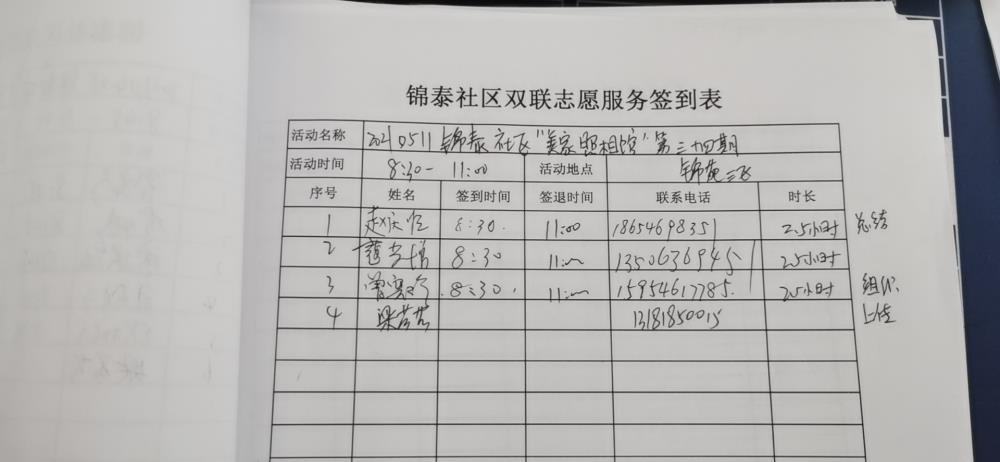 锦泰社区双联志愿服务签到表
活动名称 20210511 锦泰社区"美家照相馆"第三十四期
活动时间 8:30- 11:00 活动地点 锦苑三区
序号 姓名 签到时间 签退时间 联系电话 时长
1 8:30. 11:00 18654698351 2.5小时 总结
2 8:30 11:00 13506369451 2.5小时
3 8:30. 11:00 15954617785. 2.5小时 组织.
4 13181850015 上传